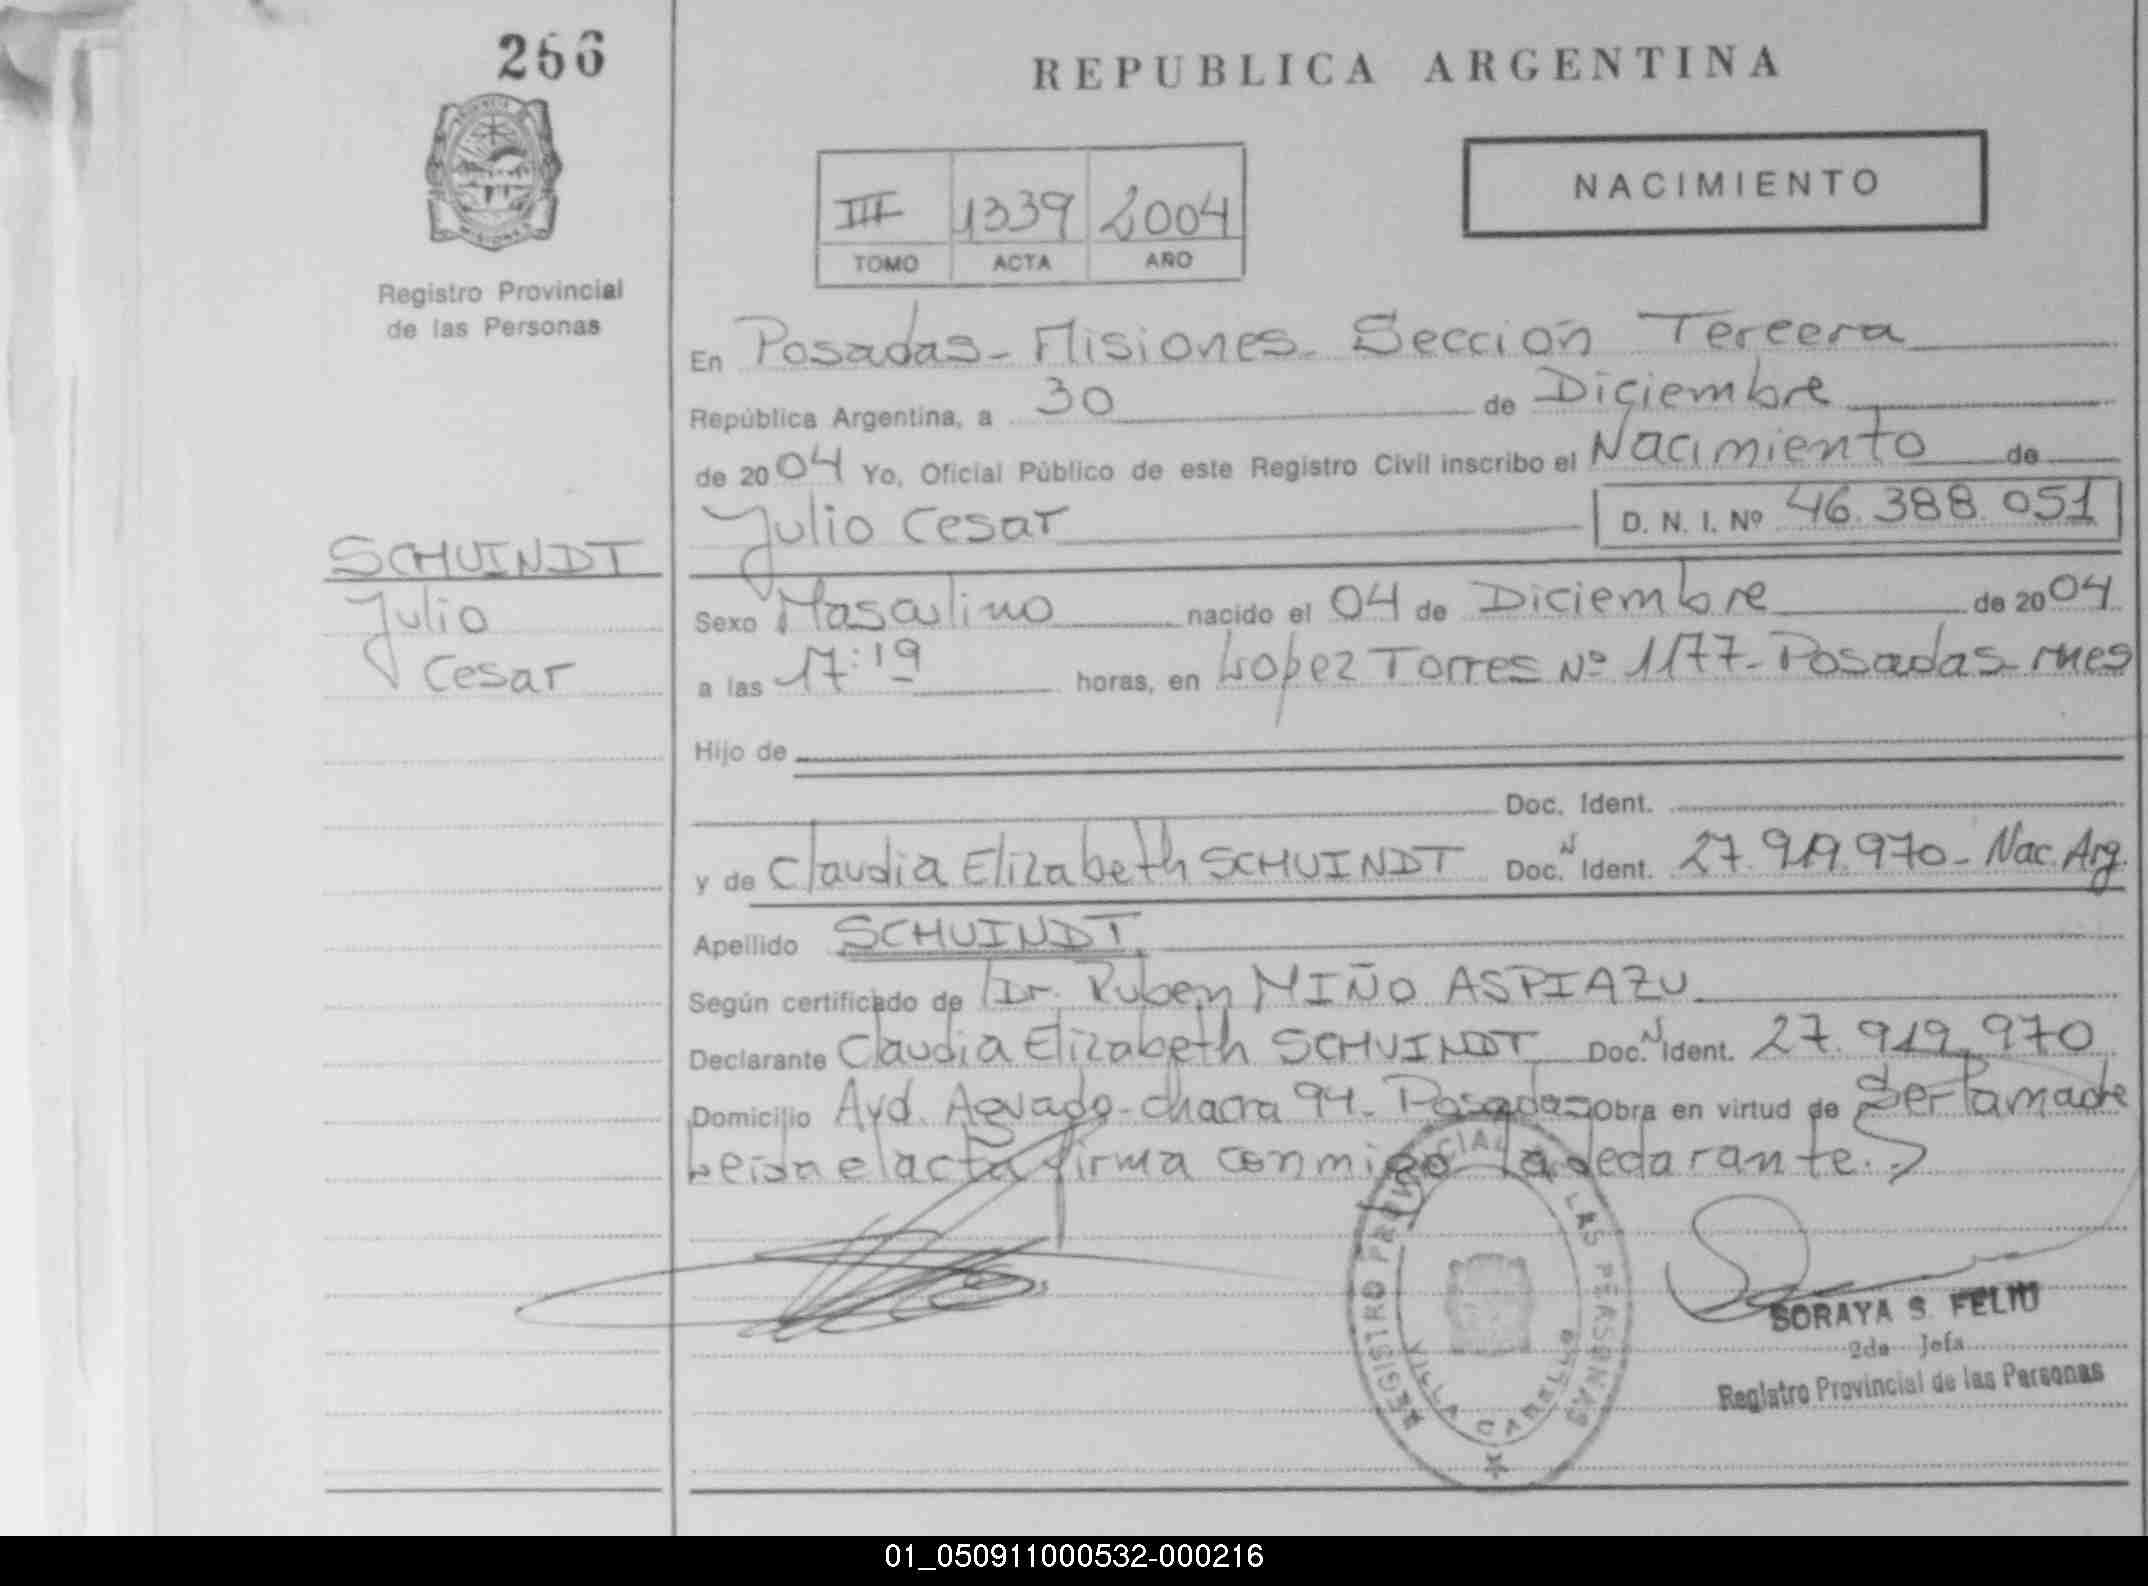 266
REPUBLICA ARGENTINA
MISIONES
Registro Provincial
de las Personas
III 1339 2004
TOMO ACTA AÑO
NACIMIENTO
En Posadas - Misiones - Sección Tercera
República Argentina, a 30 de Diciembre
de 2004 Yo, Oficial Público de este Registro Civil inscribo el Nacimiento de
Julio Cesar D. N. I. Nº 46.388.051
SCHUINDT
Julio
Cesar
Sexo Masculino nacido el 04 de Diciembre de 2004
a las 17:19 horas, en Lopez Torres Nº 1177 - Posadas - mes
Hijo de
Doc. Ident.
y de Claudia Elizabeth SCHUINDT Doc. N Ident. 27.919.970 - Nac. Arg.
Apellido SCHUINDT
Según certificado de Dr. Ruben MIÑO ASPIAZU
Declarante Claudia Elizabeth SCHUINDT Doc. N Ident. 27.919.970
Domicilio Avd. Aguado - chacra 94 - Posadas Obra en virtud de Ser la madre
Leida el acta firma conmigo la declarante.
REGISTRO PROVINCIAL LAS PERSONAS
VILLA CABELLO
SORAYA S. FELIU
2da Jefa
Registro Provincial de las Personas
01_050911000532-000216